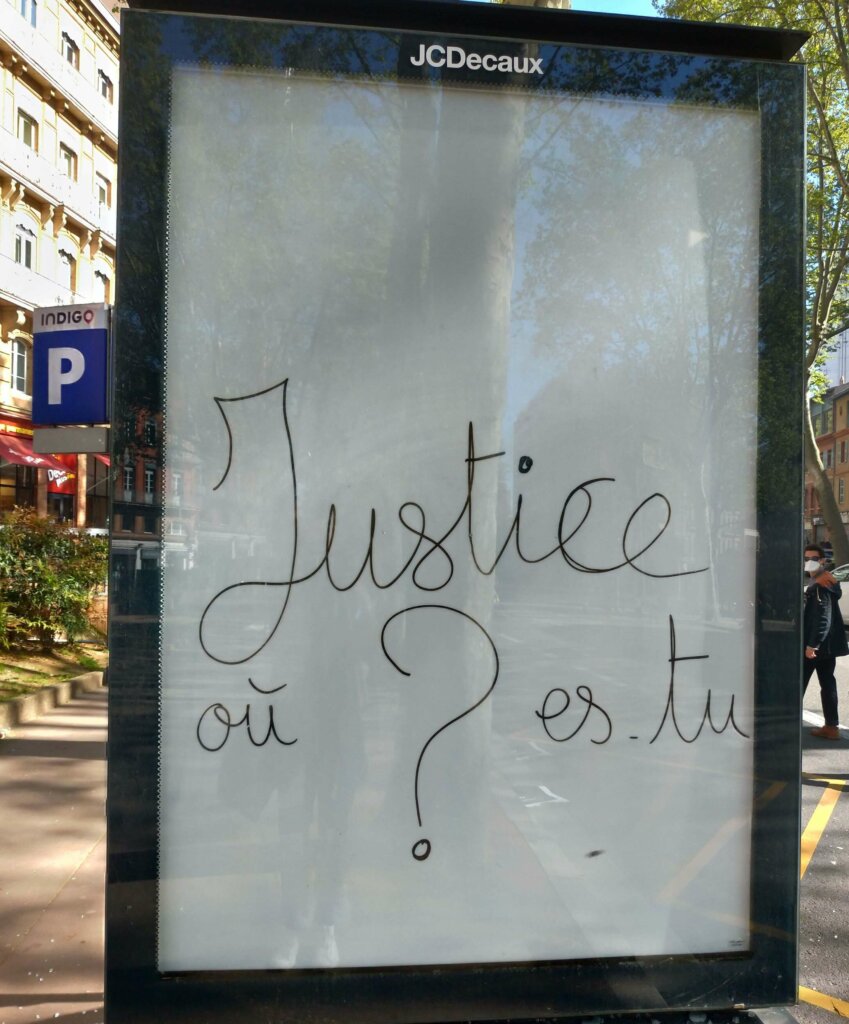 JCDecaux
INDIGO
P
Justice
où ? es-tu